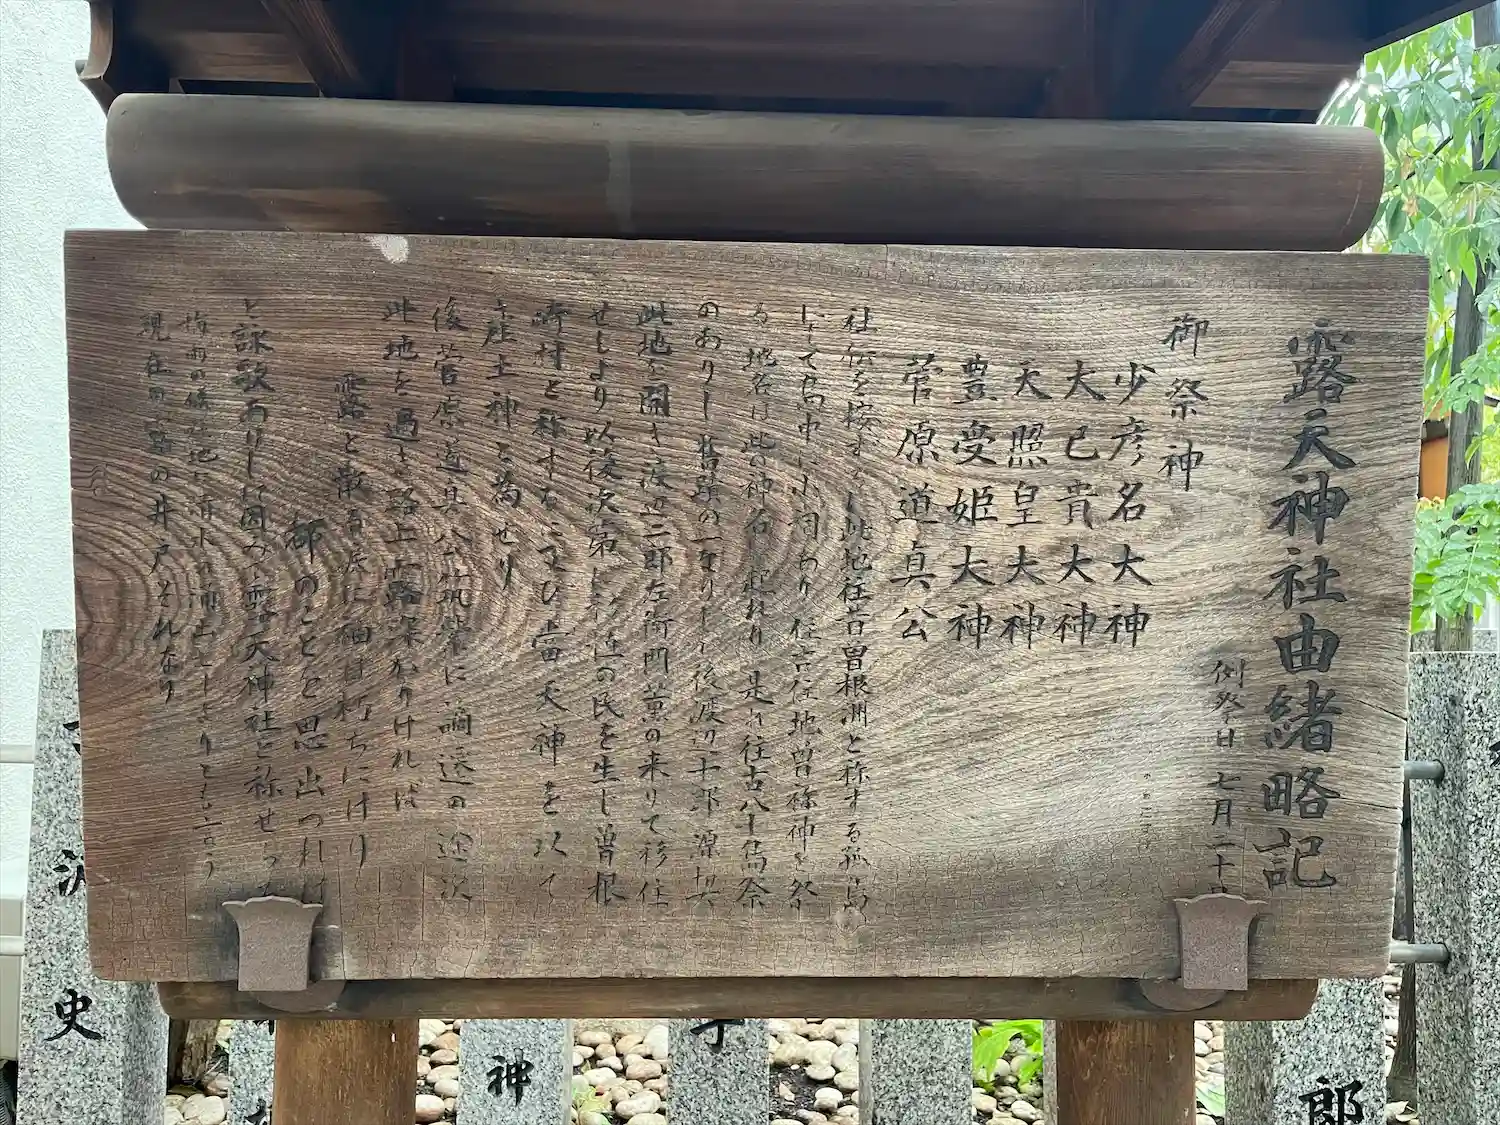 露天神社由緒略記
例祭日 七月二十日
御祭神
少彦名大神
大己貴大神
天照皇大神
豊受姫大神
菅原道真公
社伝を按ずるに此地往昔曽根洲と称する孤島
にして島中に小祠あり住吉住地曽祢神を祭
る地名は此の神名に起れり是れ往古八十島祭
のありし旧蹟の一なりしと後渡辺十郎源契
此地を開き渡辺二郎左衛門薫の来りて移住
せしより以後次第に移住の民を生じ曽根
崎村と称するに及び当天神を以て
産土神と為せり
後菅原道真公筑紫に謫送の途次
此地を過ぎ路上露深かりければ
露と散る涙に袖は朽ちにけり
都のことを思出づれば
と詠歌ありしに因み露天神社と称せらる
梅雨の候此地に
によりと言う
現在の露の井戸それなり
沢
史
神
子
郎